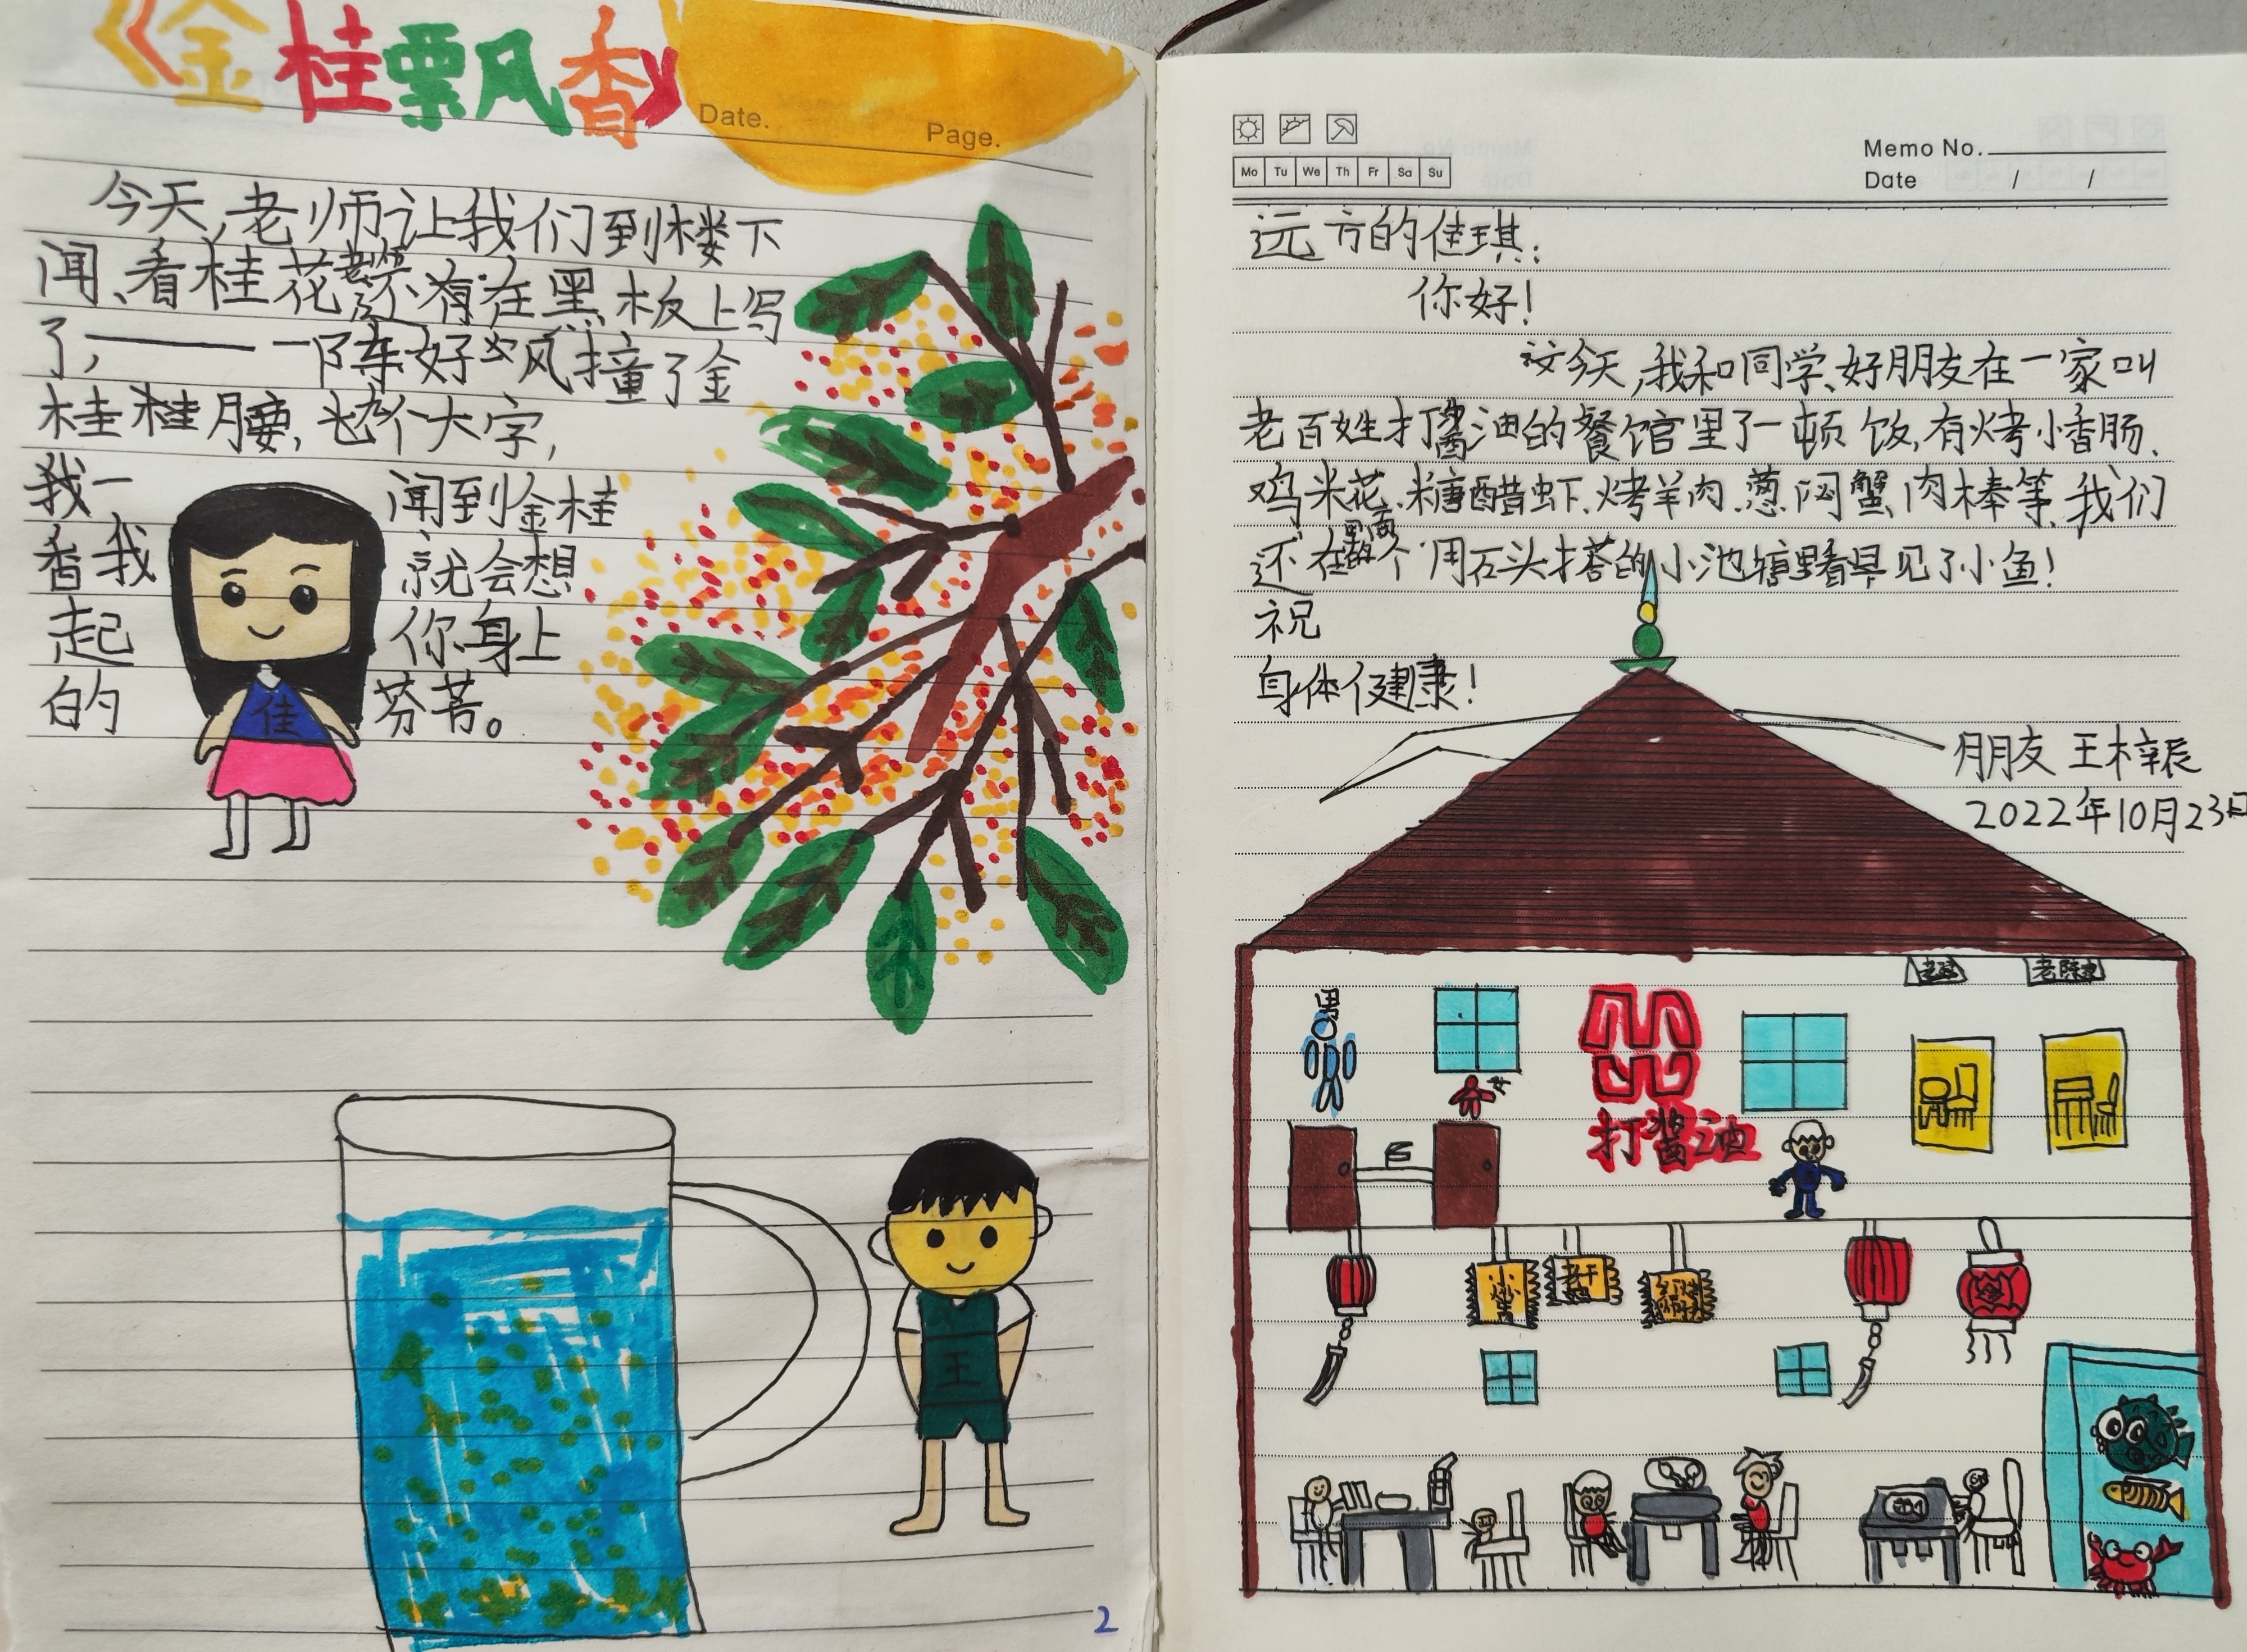 《金桂飘风香》
Date.
Page.
今天,老师让我们到楼下
闻、看桂花,不有在黑板上写
了,——一阵好大风撞了金
桂桂腰,个大字,
我一闻到金桂
香我就会想
起你身上
的芬芳。
佳
王
2
Mo Tu We Th Fr Sa Su
Memo No.
Date / /
远方的佳琪:
你好!
今天,我和同学、好朋友在一家叫
老百姓打酱油的餐馆里了一顿饭,有烤小香肠、
鸡米花、糖醋虾、烤羊肉、葱闷蟹、肉棒等,我们
还在里面的个用石头搭的小池塘里看早见了小鱼!
祝
身体健康!
朋友 王梓辰
2022年10月23日
男
女
打酱油